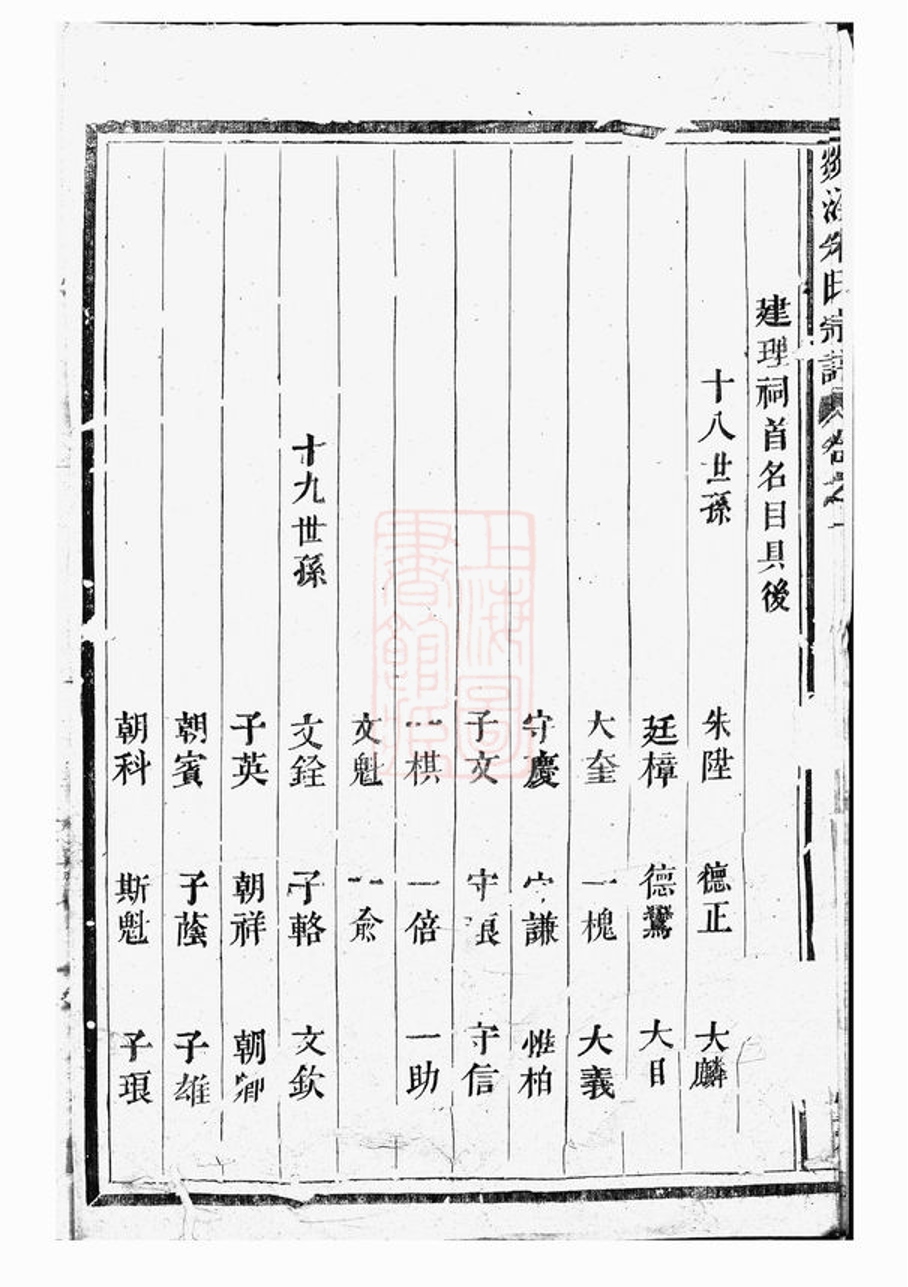 朱氏宗譜 卷之一
建理祠首名目具後
十八世孫 朱陞 德正 大麟
廷樟 德鸞 大目
大奎 一槐 大義
守慶 守謙 惟柏
子文 守 守信
一棋 一倍 一助
文魁 一俞
十九世孫 文銓 子輅 文欽
子英 朝祥 朝卿
朝賓 子蔭 子雄
朝科 斯魁 子琅
上海圖書館藏